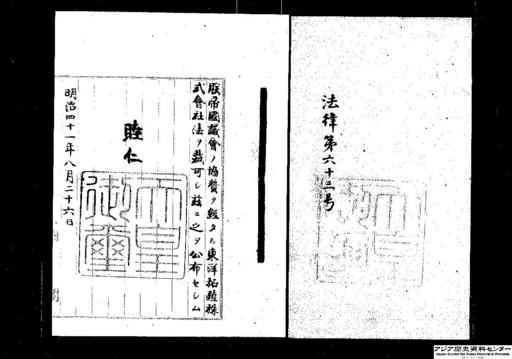 法律第六十三号
朕帝國議會ノ協贊ヲ經タル東洋拓殖株
式會社法ヲ裁可シ茲ニ之ヲ公布セシム
睦仁
天皇
御璽
明治四十一年八月二十六日
アジア歴史資料センター
Japan Center for Asian Historical Records